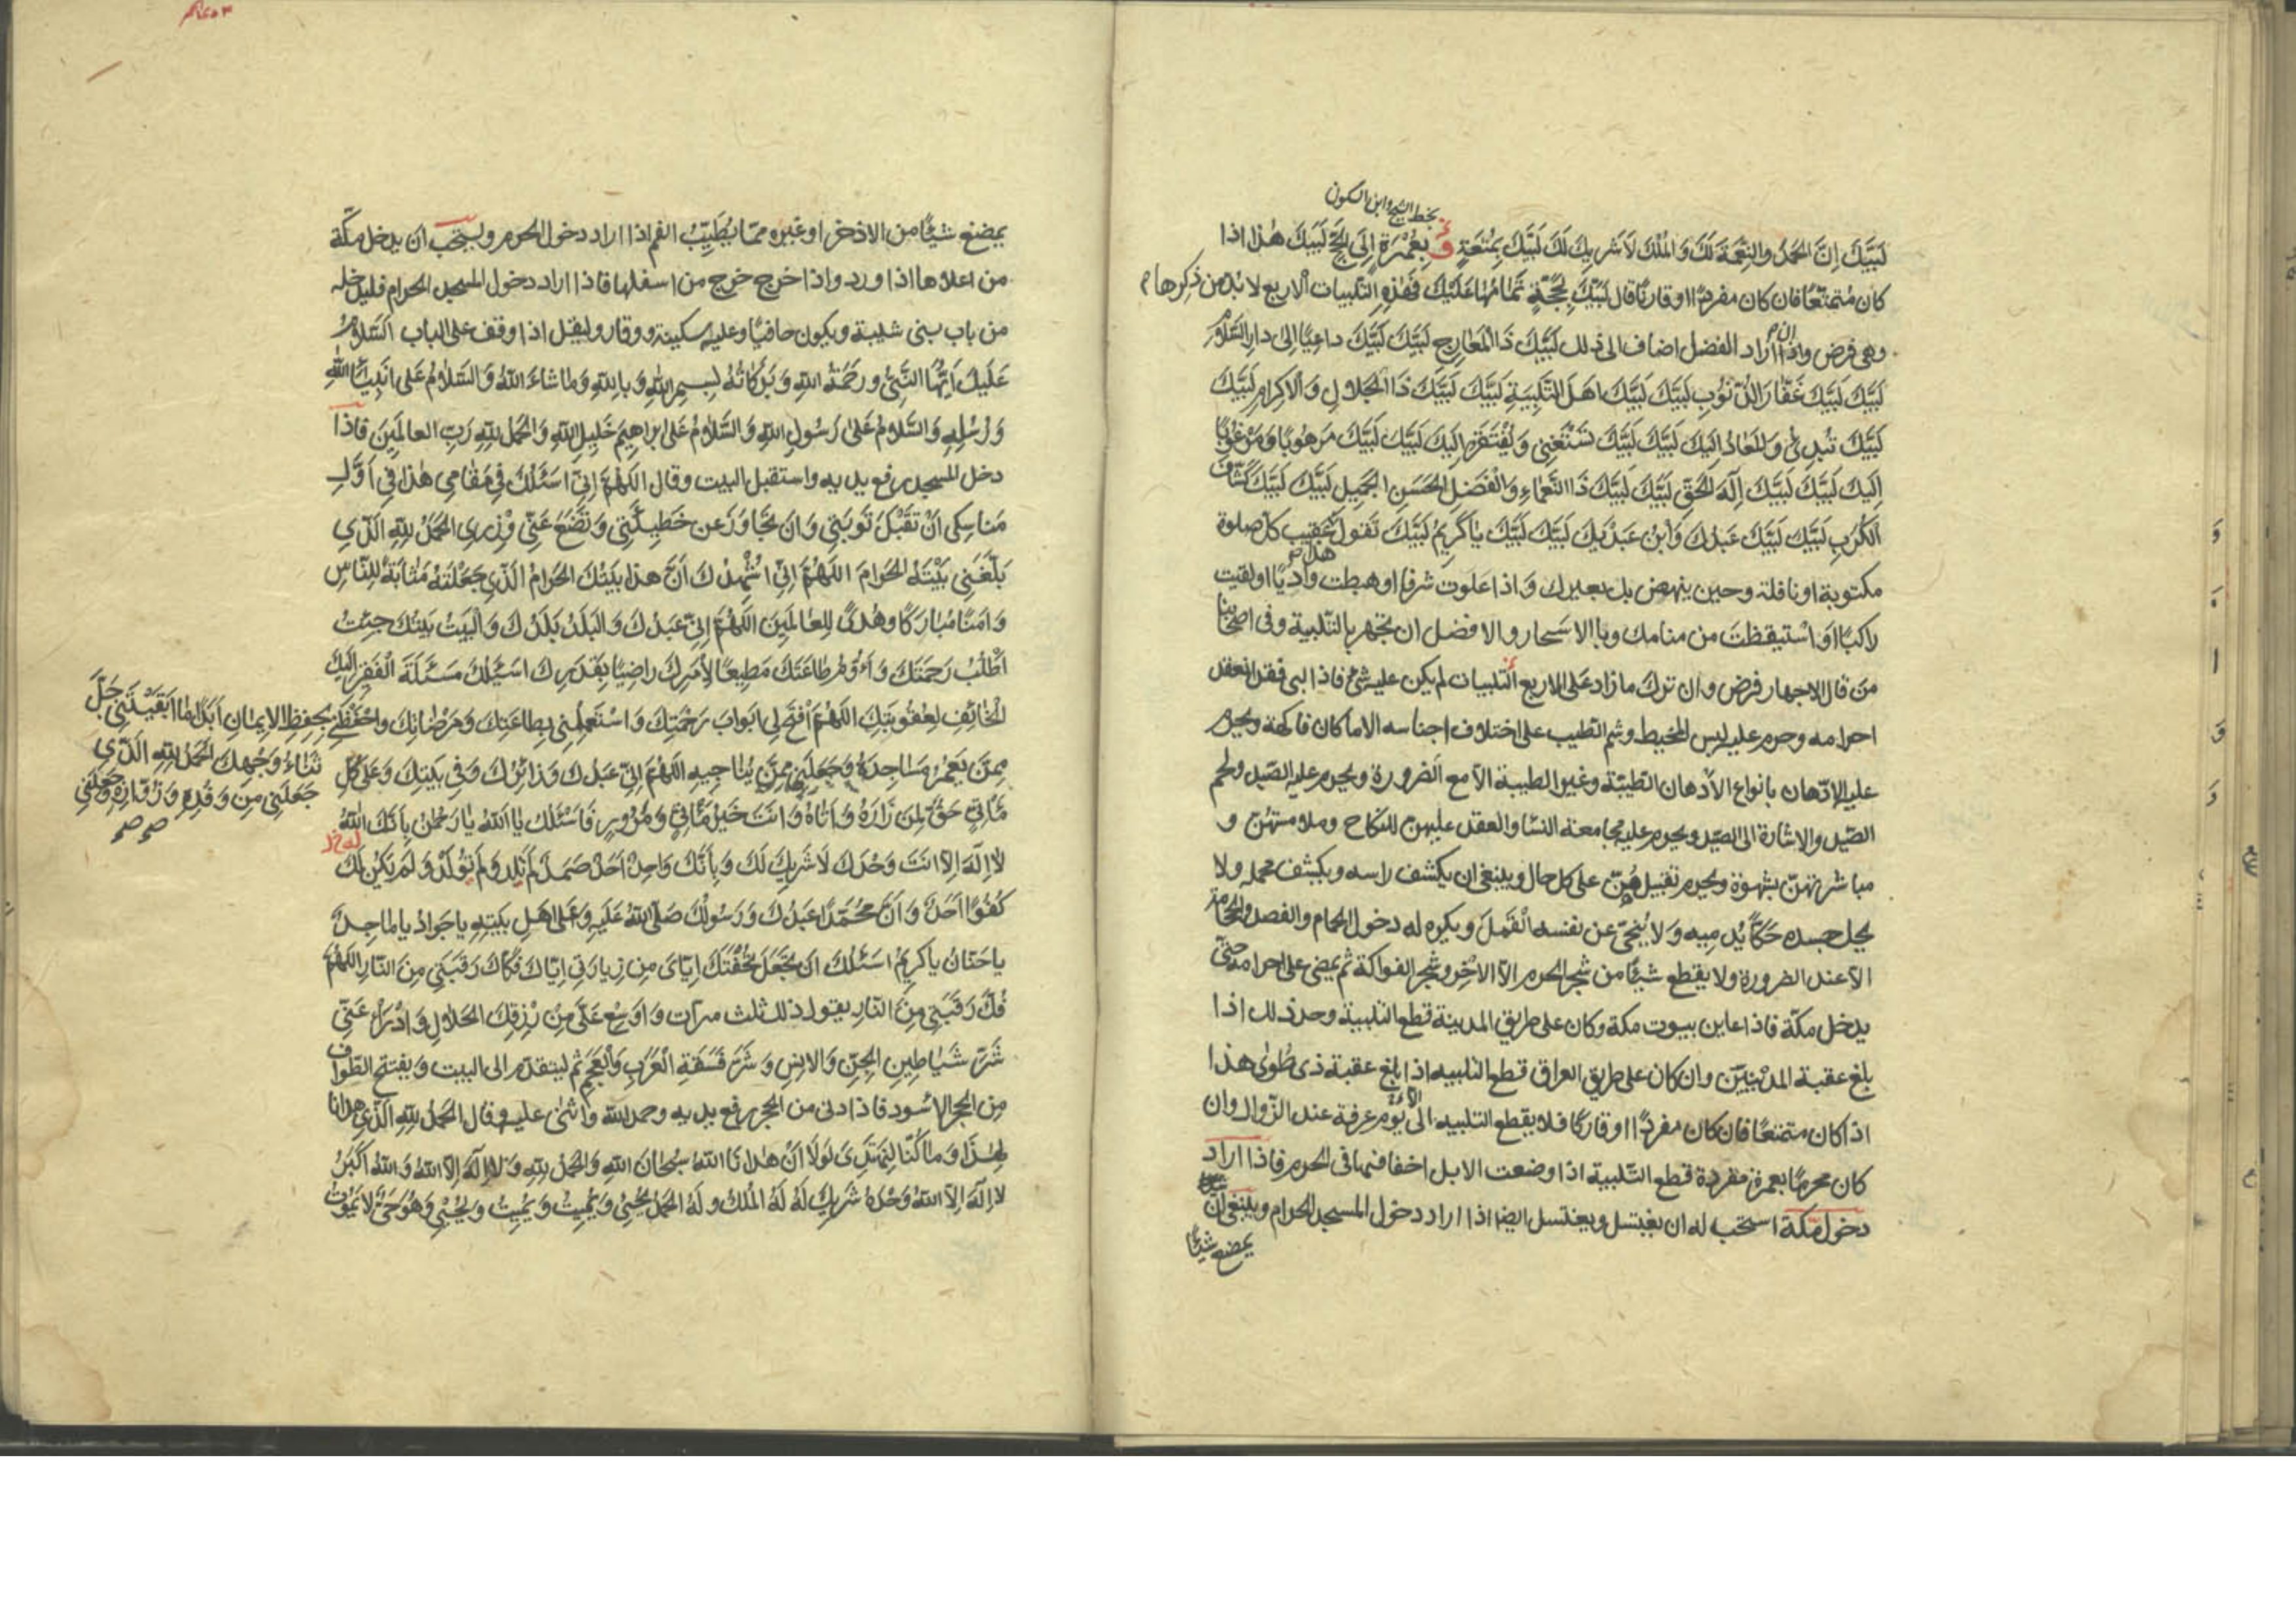 بخط الشيخ وابن السكون
لَبَّيْكَ اِنَّ الحَمْدَ والنِّعْمَةَ لَكَ وَالمُلْكَ لاَ شَرِيكَ لَكَ لَبَّيْكَ بِمُتْعَةٍ وَ بِعُمْرَةٍ اِلَى الحَجِّ لَبَّيْكَ هٰذا اذا
كان مُتمتّعًا فان كان مفردًا او قارنًا قال لَبَّيْكَ بِحَجَّةٍ تَمَامُهَا عَلَيْكَ فَهٰذِهِ التلبيات الاربع لا بُدّ من ذِكرها
وهى فرض وان اراد الفضل اضاف الى ذلك لَبَّيْكَ ذَا الْمَعَارِجِ لَبَّيْكَ لَبَّيْكَ داعِيًا اِلى دارِ السَّلاٰمِ
لَبَّيْكَ لَبَّيْكَ غَفَّارَ الذُّنُوُبِ لَبَّيْكَ لَبَّيْكَ اهَلَ التَّلْبِيَةِ لَبَّيْكَ لَبَّيْكَ ذَا الْجَلالِ وَالاِكرامِ لَبَّيْكَ
لَبَّيْكَ تُبْدِئُ وَالمَعَادُ اِلَيْكَ لَبَّيْكَ لَبَّيْكَ تَسْتَغْنِى وَيُفْتَقَرُ اِلَيكَ لَبَّيْكَ لَبَّيْكَ مَرهُوبًا وَمَرْغُوبًا
اِلَيْكَ لَبَّيْكَ لَبَّيْكَ اِلٰهَ الْحَقِّ لَبَّيْكَ لَبَّيْكَ ذَا النَّعْمَاءِ وَالْفَضْلِ الحَسَنِ الجَمِيلِ لَبَّيْكَ لَبَّيْكَ كَشَّافَ
الكُرَبِ لَبَّيْكَ لَبَّيْكَ عَبدُكَ وَابْنُ عَبْدَيْكَ لَبَّيْكَ لَبَّيْكَ يَا كَرِيمُ لَبَّيْكَ تَقول هذا عقيب كلّ صلوة
مكتوبة او نافلة وحين ينهض بك بعيرك وَاذا عَلَوت شرفا او هبطت وَاديًا او لقيت
راكبًا او اسْتيقظتَ من منامك وبالاسَحار والافضل ان تجهر بالتّلبية وفى اصحابنا
مَن قال الاجهار فرض وان ترك ما زاد عَلى الاربع التلبيات لم يكن عليه شئ فاذا لبى فقد انعقد
احرامه وحرم عليه لبس المخيط وشم الطيب على اختلاف اجناسه الا ما كان فاكهة ويحرم
عليه الادّهان بانواع الادهان الطيّبَة وغير الطيبة الاّ مع الضرورة ويحرم عليه الصّيد ولحم
الصّيد والاشارة الى الصّيد ويحرم عليه مجامعة النسا والعقد عليهن للنكاح وملامستهنّ و
مباشرتهنّ بشهوة ويحرم تقبيلهُنّ على كل حال وينبغى ان يكشف راسه ويكشف محمله ولا
يحك جسده حَكًّا يُدمِيه وَلا يُنحّى عن نفسه القَمل ويكره له دخول الحمام والفصد والحجامة
الاّ عند الضرورة ولا يقطع شيئًا من شجر الحرم الاّ الاذخر وشجر الفواكه ثم يمضى على احرامه حتّى
يدخل مكّة فاذا عاين بيوت مكة وكان على طريق المدينة قطع التلبية وحد ذلك اذا
بلغ عقبة المدنيّين وان كان على طريق العراق قطع التلبيه اذا بلغ عقبة ذى طُوى هذا
اذا كان متمتعًا فان كان مفردًا او قارنًا فلا يقطع التلبيه الى يوم عرفة عند الزّوال وان
كان محرمًا بعمرة مفردة قطع التّلبية اذا وضعت الابل اخفافها فى الحرم فاذا اراد
دخول مكة استحب له ان يغتسل ويغتسل ايضا اذا اراد دخول المسجد الحرام وينبغى ان
يمضغ شيئًا
يمضغ شيئًا من الاذخر او غيره ممّا يُطَيِّبُ الفم اذا اراد دخول الحرم ويستحب ان يدخل مكّة
من اعلاها اذا ورد واذا خرج خرج من اسفلها فاذا اراد دخول المسجد الحرام فليدخله
من باب بنى شيبة ويكون حافيًا وعليه سكينة ووقار وليقل اذا وقف على الباب السَّلاٰمُ
عَلَيْكَ اَيُّهَا النَّبِىُّ وَرَحْمَةُ اللهِ وَبَرَكَاتُهُ بِسمِ اللهِ وَبِاللهِ وَمَا شاءَ اللهُ وَالسَّلاٰمُ عَلى انْبِيَاءِ اللهِ
وَرُسُلِهِ وَالسَّلاٰمُ عَلىٰ رَسُولِ اللهِ وَالسَّلاٰمُ عَلىٰ ابراهِيمَ خَلِيلِ اللهِ وَالحَمْدُ للهِ رَبِّ العالَمِينَ فَاذا
دخل المسجد رفع يديه واستقبل البيت وقال اللّهُمَّ اِنِّى اَسْئَلُكَ فِى مَقَامِى هٰذا فِى اَوَّلِ
مَناسِكِى اَنْ تَقْبَلَ تَوبَتِى وَانَ تَجَاوَزَ عَن خَطِيئَتِى وَتَضَعَ عَنِّى وِزْرِى الحَمْدُ للهِ الَّذِى
بَلَّغَنِى بَيْتَهُ الْحَرامَ اللّهُمَّ اِنِّى اُشْهِدُكَ اَنَّ هذا بَيْتُكَ الحَرامُ الَّذِى جَعَلْتَهُ مَثابَةً لِلنَّاسِ
وَامْنًا مُبَارَكًا وَهُدًى لِلعَالَمِينَ اللّهُمَّ اِنِّى عَبْدُكَ وَالبَلَدُ بَلَدُكَ وَالبَيْتُ بَيْتُكَ جِئْتُ
اَطْلُبُ رَحْمَتَكَ وَاَؤُمُّ طَاعَتَكَ مُطِيعًا لِاَمْرِكَ راضِيًا بِقَدَرِكَ اَسْئَلُكَ مَسْئَلَةَ الْفَقِيرِ اِلَيْكَ
الْخَائِفِ لِعُقُوبَتِكَ اللّهُمَّ افْتَحْ لِى اَبْوابَ رَحْمَتِكَ وَاسْتَعْمِلْنِى بِطاعَتِكَ وَمَرْضَاتِكَ واحْفَظْنِى بِحِفظِ الاِيمَانِ اَبَدًا مَا اَبْقَيْتَنِى جَلَّ
ثَنَاءُ وَجْهِكَ الحَمْدُ للهِ الَّذِى
جَعَلَنِى مِنْ وَفْدِهِ وَزُوّارِهِ وَجَعَلَنِى
صح صح
مِمَّنْ يَعْمُرُ مَسَاجِدَهُ وَجَعَلَنِى مِمَّنْ يُنَاجِيهِ اللّهُمَّ اِنِّى عَبْدُكَ وَزَائِرُكَ وَفِى بَيْتِكَ وَعَلىٰ كُلِّ
مَأتِىٍّ حَقٌّ لِمَنْ زَارَهُ وَاَتَاهُ وَانْتَ خَيْرُ مَأتِىٍّ وَمَزُورٍ فَاَسْئَلُكَ يَا اَللهُ يَا رَحْمٰنُ بِاَنَّكَ اللهُ
لا اِلٰهَ اِلاّ انْتَ وَحْدَكَ لاَ شَرِيكَ لَكَ وَبِاَنَّكَ وَاحِدٌ اَحَدٌ صَمَدٌ لَمْ تَلِد وَلَمْ تُوْلَدْ وَلَمْ يَكُنْ لَكَ
كُفُوًا اَحَدٌ وَاَنَّ مُحَمَّدًا عَبْدُكَ وَرَسُولُكَ صَلَّى اللهُ عَلَيْهِ وَعَلٰى اَهْلِ بَيْتِهِ يا جَوادُ يا ماجِدُ
يا حَنّانُ يا كَرِيمُ اَسْئَلُكَ اَنْ تَجْعَلَ تُحْفَتَكَ اِيّاىَ مِنْ زِيارَتِى اِيّاكَ فَكَاكَ رَقَبَتِى مِنَ النّارِ اللّهُمَّ
فُكَّ رَقَبَتِى مِنَ النّارِ يقول ذلك ثلث مرّات وَاَوْسِعْ عَلَىَّ مِنْ رِزْقِكَ الحَلالِ وَادْرَأْ عَنِّى
شَرَّ شَيَاطِينِ الجِنِّ وَالاِنسِ وَشَرَّ فَسَقَةِ الْعَرَبِ وَالْعَجَمِ ثم ليتقدّم الى البيت ويفتتح الطّواف
مِن الحجر الاسْود فاذا دنى من الحجر رفع يديه وحمد الله واثنى عليه وقال الحَمْدُ للهِ الّذى هدانا
لِهٰذَا وَمَا كُنَّا لِنَهْتَدِىَ لَوْلَا اَنْ هَدانَا اللهُ سُبْحَانَ اللهِ وَالحَمْدُ للهِ وَلَا اِلٰهَ اِلاَّ اللهُ وَاللهُ اَكْبَرُ
لا اِلٰهَ اِلاّ اللهُ وَحْدَهُ شَرِيكَ لَهُ لَهُ المُلْكُ وَلَهُ الحَمْدُ يُحْيِى وَيُمِيتُ وَيُمِيتُ وَيُحْيِى وَهُوَ حَىٌّ لا يَمُوتُ